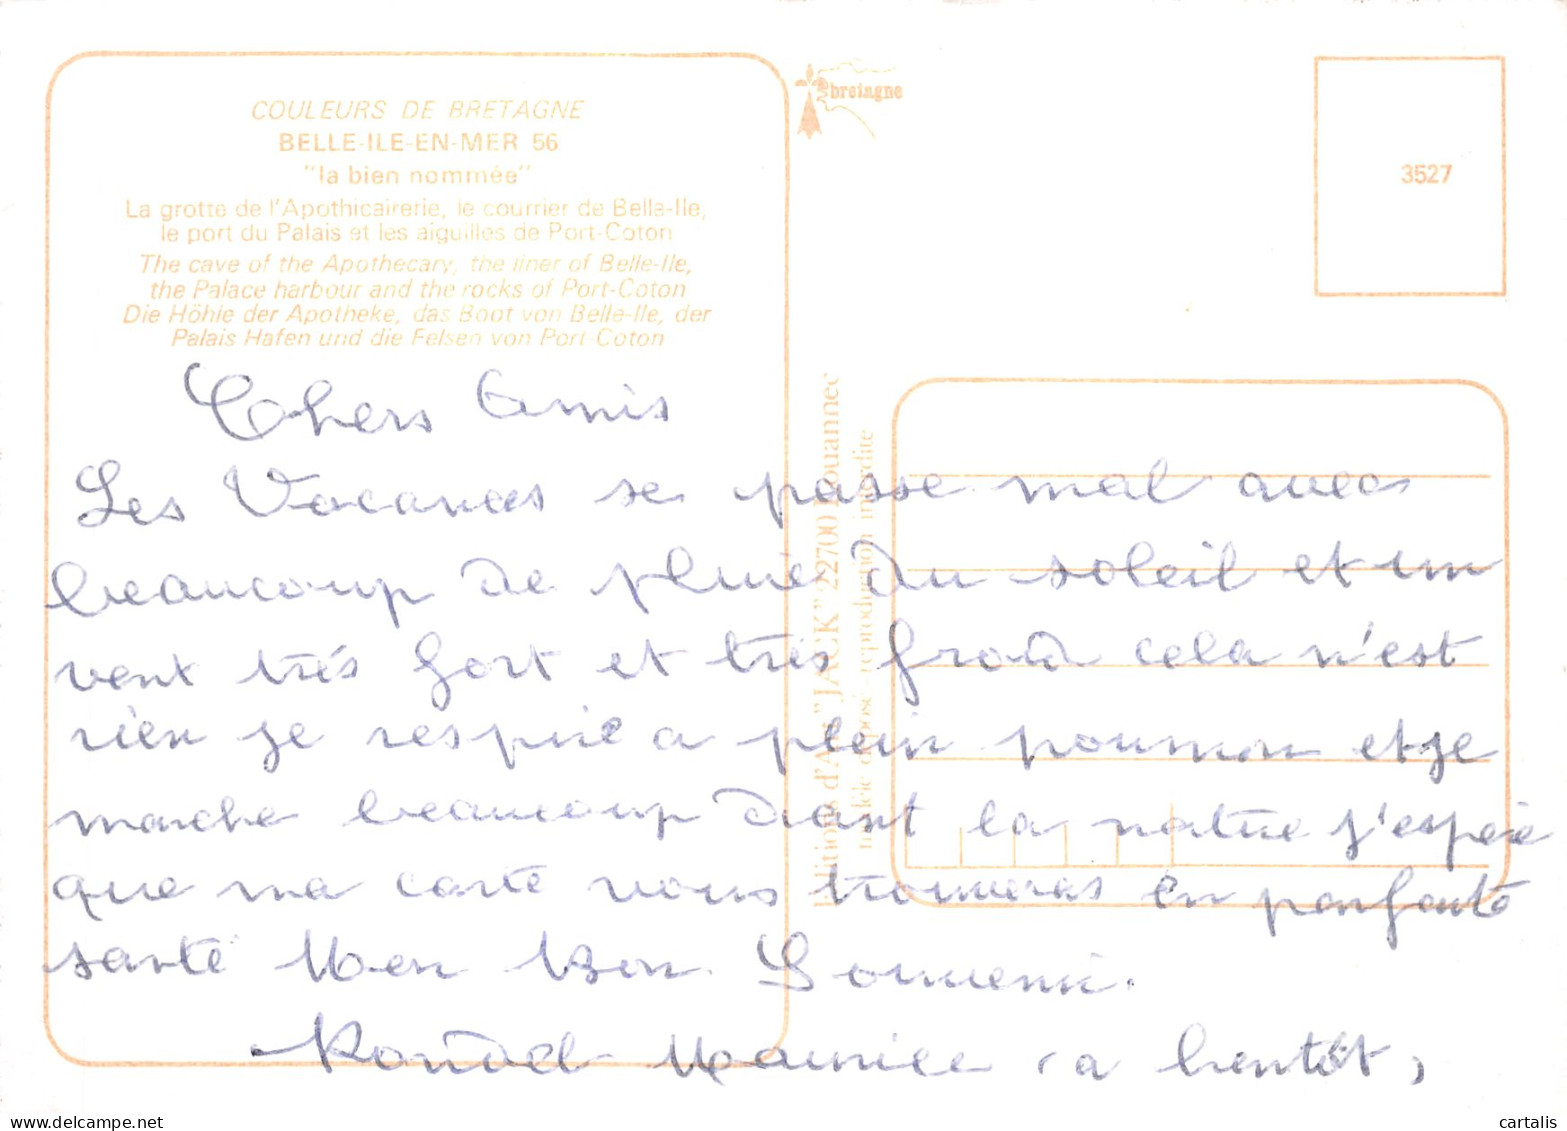 COULEURS DE BRETAGNE
BELLE-ILE-EN-MER 56
"la bien nommée"
La grotte de l'Apothicairerie, le courrier de Belle-Ile,
le port du Palais et les aiguilles de Port-Coton
The cave of the Apothecary, the liner of Belle-Ile,
the Palace harbour and the rocks of Port-Coton
Die Höhle der Apotheke, das Boot von Belle-Ile, der
Palais Hafen und die Felsen von Port-Coton
bretagne
3527
Editions d'Art "JACK" 22700 Louannec
modèle déposé - reproduction interdite
Chers Amis
Les Vacances se passe mal avec
beaucoup de pluie du soleil et un
vent très fort et très froid cela n'est
rien je respire a plein poumon et je
marche beaucoup dans la nature j'espère
que ma carte vous trouveras en parfaite
santé Mon Bon Souvenir.
Maurice (a bentôt,
cartalis